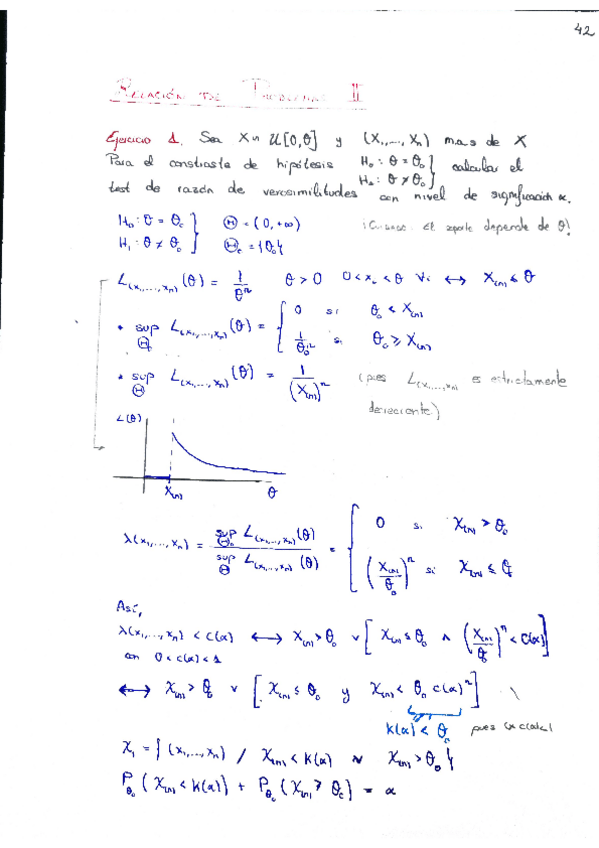 42
Relación de Problemas II
Ejercicio 1. Sea X ~ U[0,θ] y (X₁,...,Xₙ) m.a.s de X
Para el constraste de hipótesis H₀: θ = θ₀ } calcular el
H₁: θ ≠ θ₀ }
test de razón de verosimilitudes con nivel de significación α.
H₀: θ = θ₀ } Θ = (0, +∞) ¡Cuidado: el soporte depende de θ!
H₁: θ ≠ θ₀ } Θ₀ = {θ₀}
L(x₁,...,xₙ)(θ) = 1/θⁿ θ > 0 0 < xᵢ < θ ∀i ↔ X₍ₙ₎ ≤ θ
• sup_Θ₀ L(x₁,...,xₙ)(θ) = { 0 si θ₀ < X₍ₙ₎
1/θ₀ⁿ si θ₀ ≥ X₍ₙ₎
• sup_Θ L(x₁,...,xₙ)(θ) = 1/(X₍ₙ₎)ⁿ (pues L(x₁,...,xₙ) es estrictamente
decreciente.)
L(θ)
X₍ₙ₎ θ
λ(x₁,...,xₙ) = sup_Θ₀ L(x₁,...,xₙ)(θ) / sup_Θ L(x₁,...,xₙ)(θ) = { 0 si X₍ₙ₎ > θ₀
(X₍ₙ₎/θ₀)ⁿ si X₍ₙ₎ ≤ θ₀
Así,
λ(x₁,...,xₙ) < c(α) ↔ X₍ₙ₎ > θ₀ ∨ [ X₍ₙ₎ ≤ θ₀ ∧ (X₍ₙ₎/θ₀)ⁿ < c(α) ]
con 0 < c(α) < 1
↔ X₍ₙ₎ > θ₀ ∨ [ X₍ₙ₎ ≤ θ₀ y X₍ₙ₎ < θ₀ c(α)ⁿ ]
K(α) < θ₀ pues
χ₁ = { (x₁,...,xₙ) / X₍ₙ₎ < K(α) ∨ X₍ₙ₎ > θ₀ }
P_θ₀ ( X₍ₙ₎ < K(α) ) + P_θ₀ ( X₍ₙ₎ ≥ θ₀ ) = α